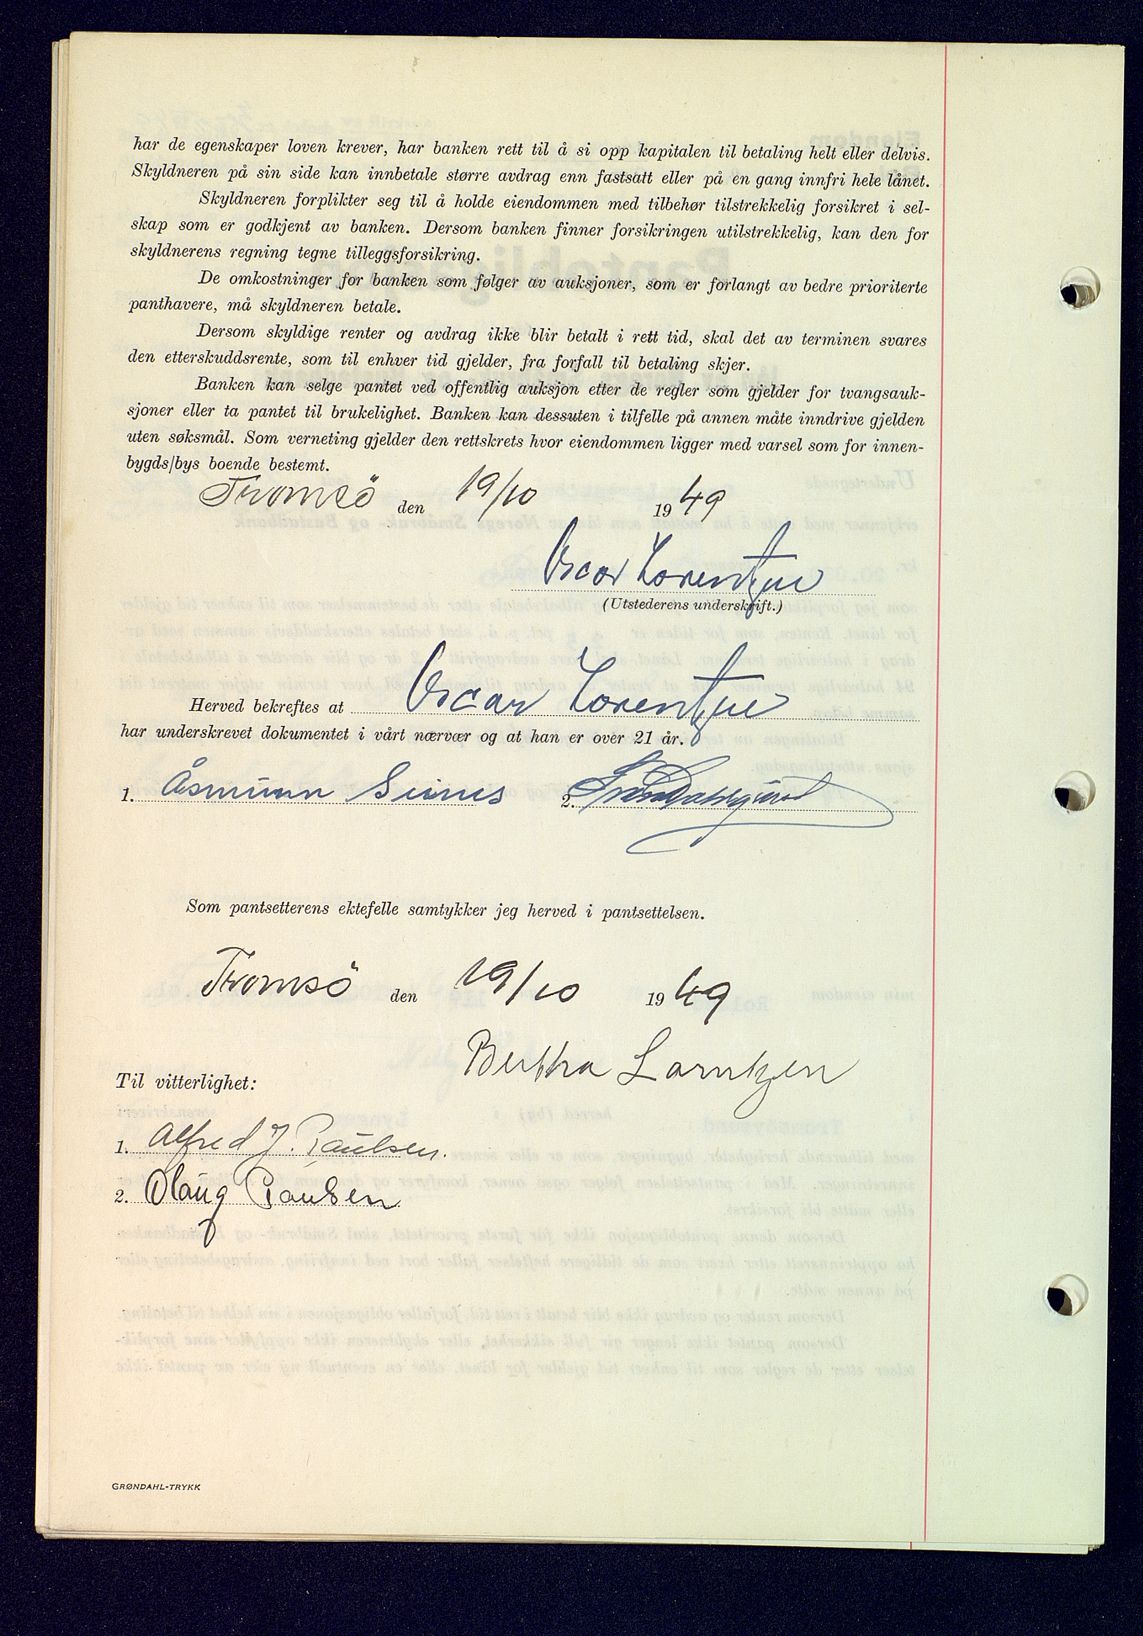 har de egenskaper loven krever, har banken rett til å si opp kapitalen til betaling helt eller delvis.
Skyldneren på sin side kan innbetale større avdrag enn fastsatt eller på en gang innfri hele lånet.
Skyldneren forplikter seg til å holde eiendommen med tilbehør tilstrekkelig forsikret i sel-
skap som er godkjent av banken. Dersom banken finner forsikringen utilstrekkelig, kan den for
skyldnerens regning tegne tilleggsforsikring.
De omkostninger for banken som følger av auksjoner, som er forlangt av bedre prioriterte
panthavere, må skyldneren betale.
Dersom skyldige renter og avdrag ikke blir betalt i rett tid, skal det av terminen svares
den etterskuddsrente, som til enhver tid gjelder, fra forfall til betaling skjer.
Banken kan selge pantet ved offentlig auksjon etter de regler som gjelder for tvangsauk-
sjoner eller ta pantet til brukelighet. Banken kan dessuten i tilfelle på annen måte inndrive gjelden
uten søksmål. Som verneting gjelder den rettskrets hvor eiendommen ligger med varsel som for innen-
bygds/bys boende bestemt.
Tromsö den 19/10 1949
Oscar Lorentzen
(Utstederens underskrift.)
Herved bekreftes at Oscar Lorentzen
har underskrevet dokumentet i vårt nærvær og at han er over 21 år.
1. Åsmunn 2.
Som pantsetterens ektefelle samtykker jeg herved i pantsettelsen.
Tromsö den 19/10 1949
Bertha Larntzen
Til vitterlighet:
1. Alfred J. Paulsen.
2. Olaug Paulsen
GRØNDAHL-TRYKK